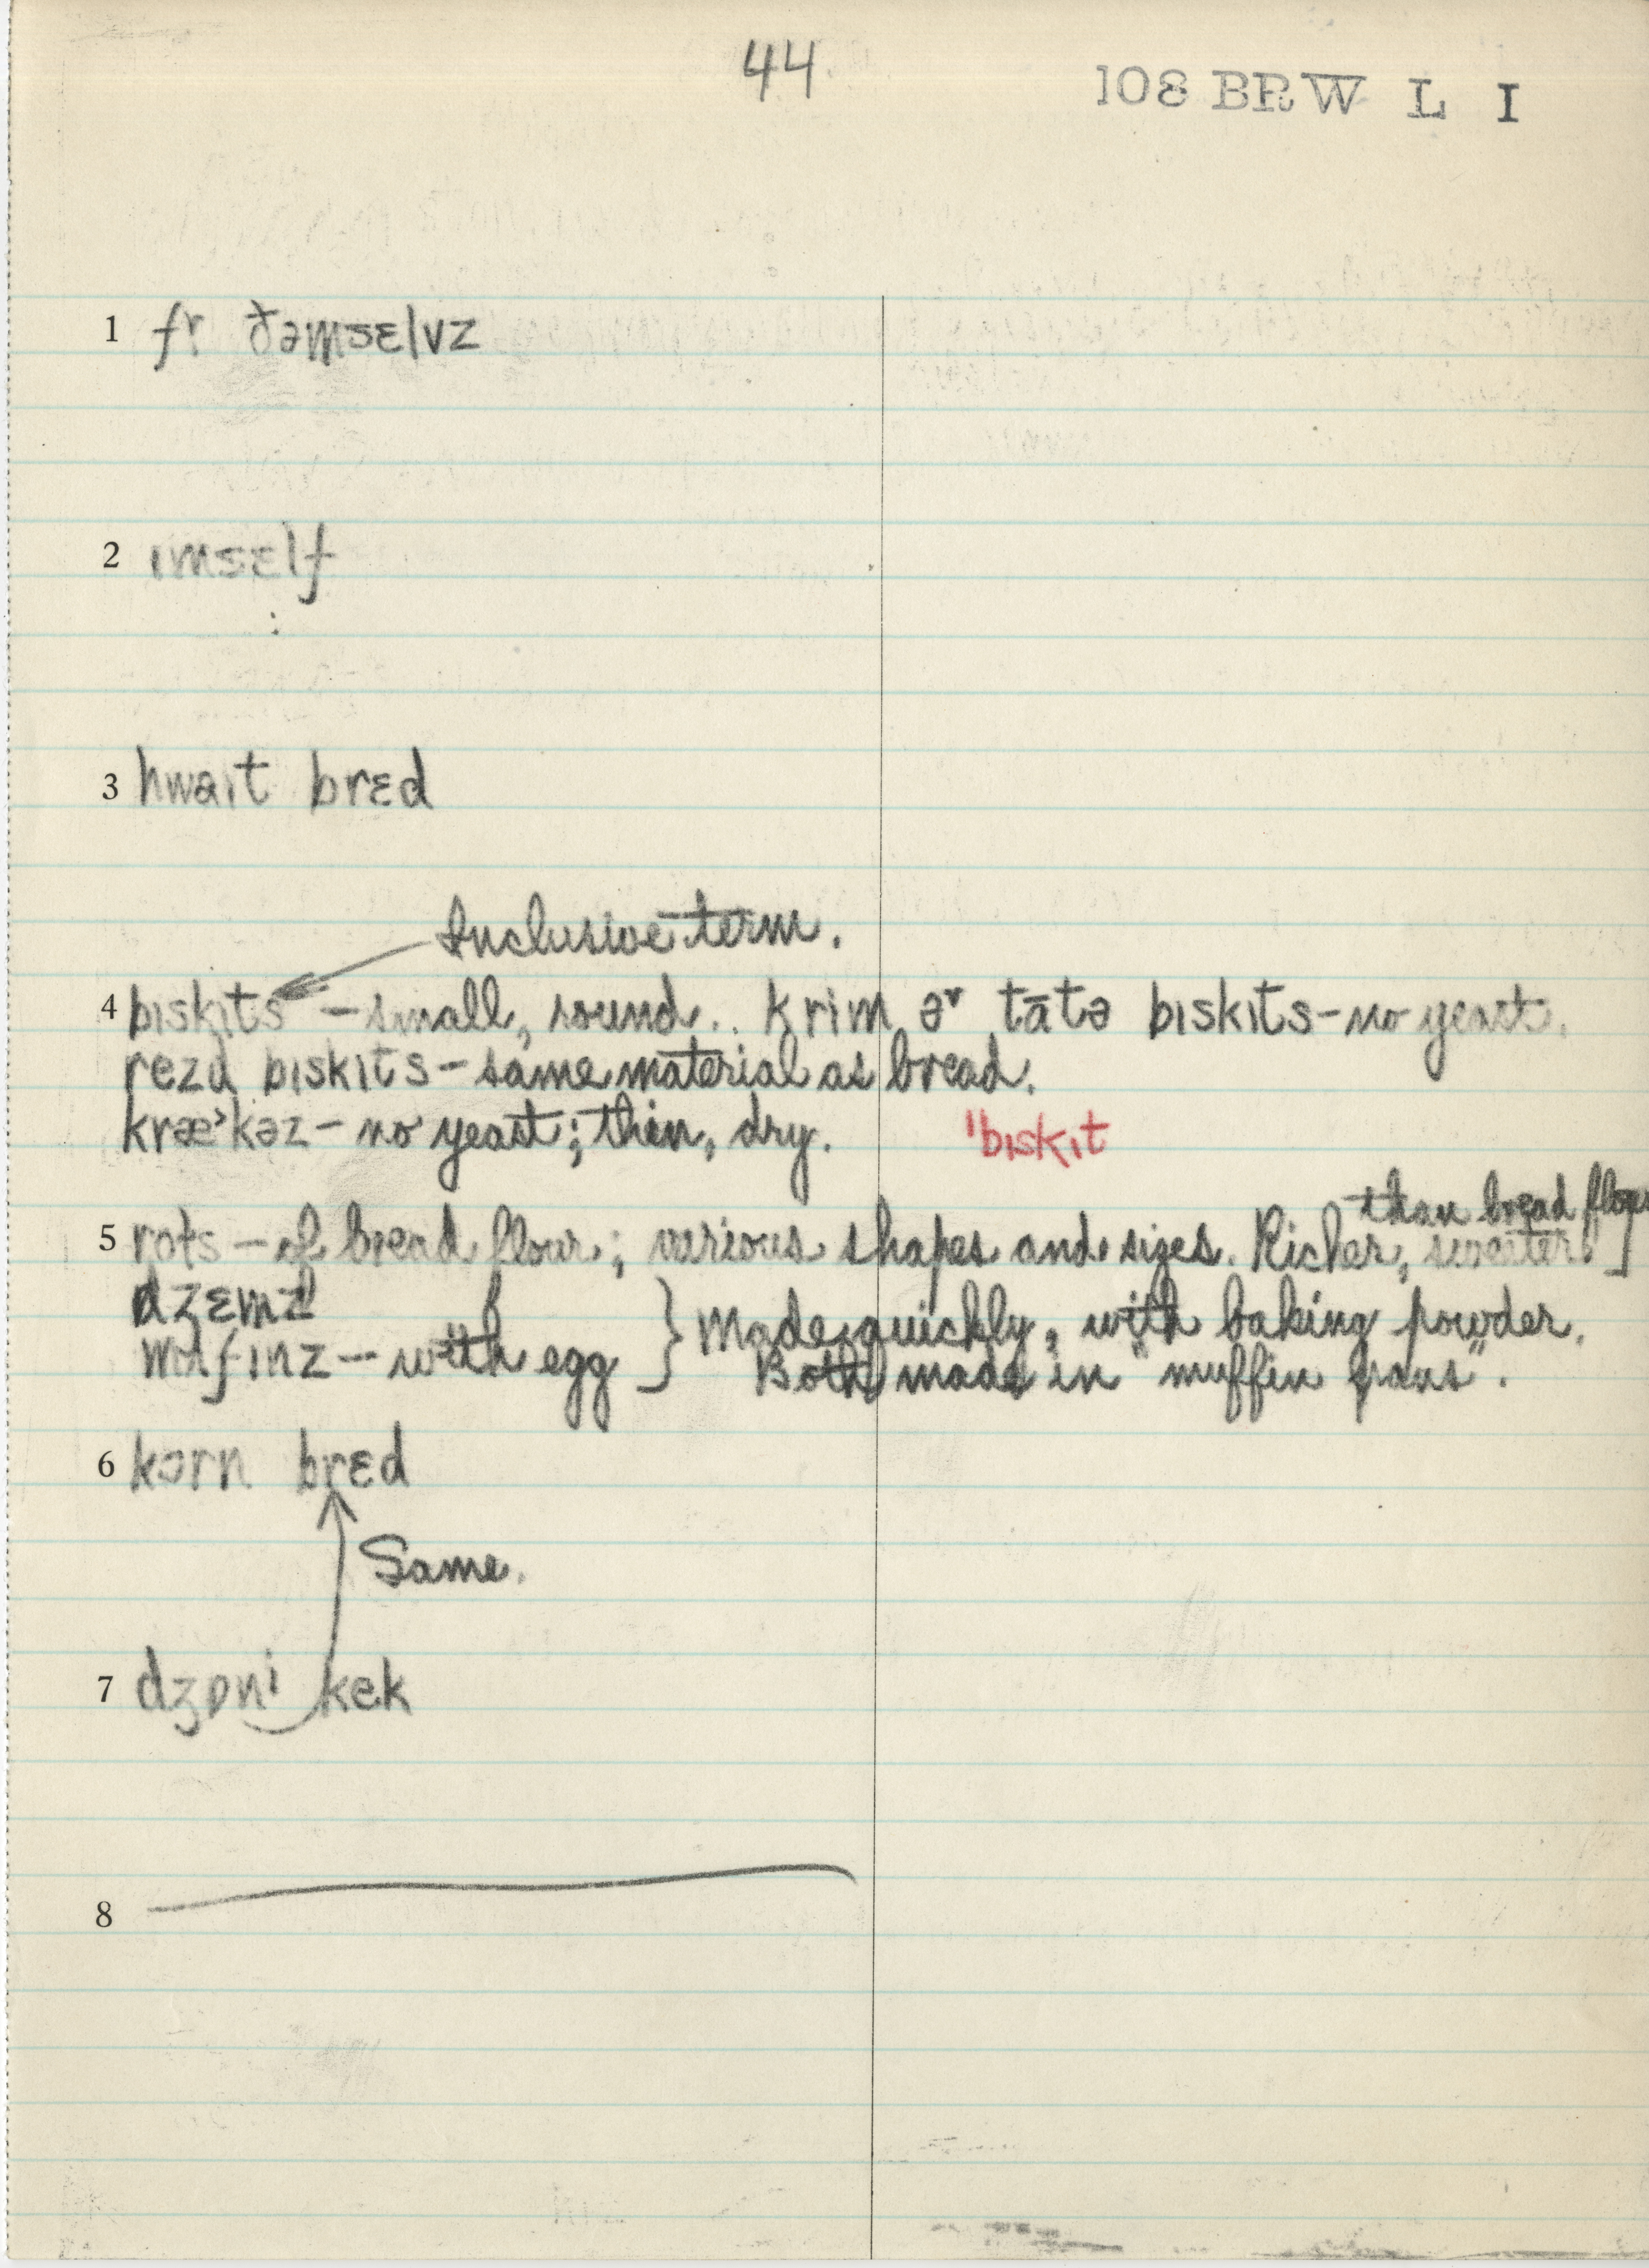 44
108 BRW L I
1 fr ðəmsɛlvz
2 ɪmsɛlf
3 hwaɪt brɛd
Inclusive term.
4 bɪskɪts – small, round. krim əʳ tātə bɪskɪts – no yeast.
rezd bɪskɪts – same material as bread.
kræ˃kəz – no yeast; thin, dry. ˈbɪskɪt
than bread flour
5 – of bread flour; various shapes and sizes. Richer, sweeter
dʒɛmz
mʌfɪnz – with egg } Made quickly, with baking powder.
Both made in "muffin pans".
6 kɔrn brɛd
Same.
7 dʒɒni kek
8